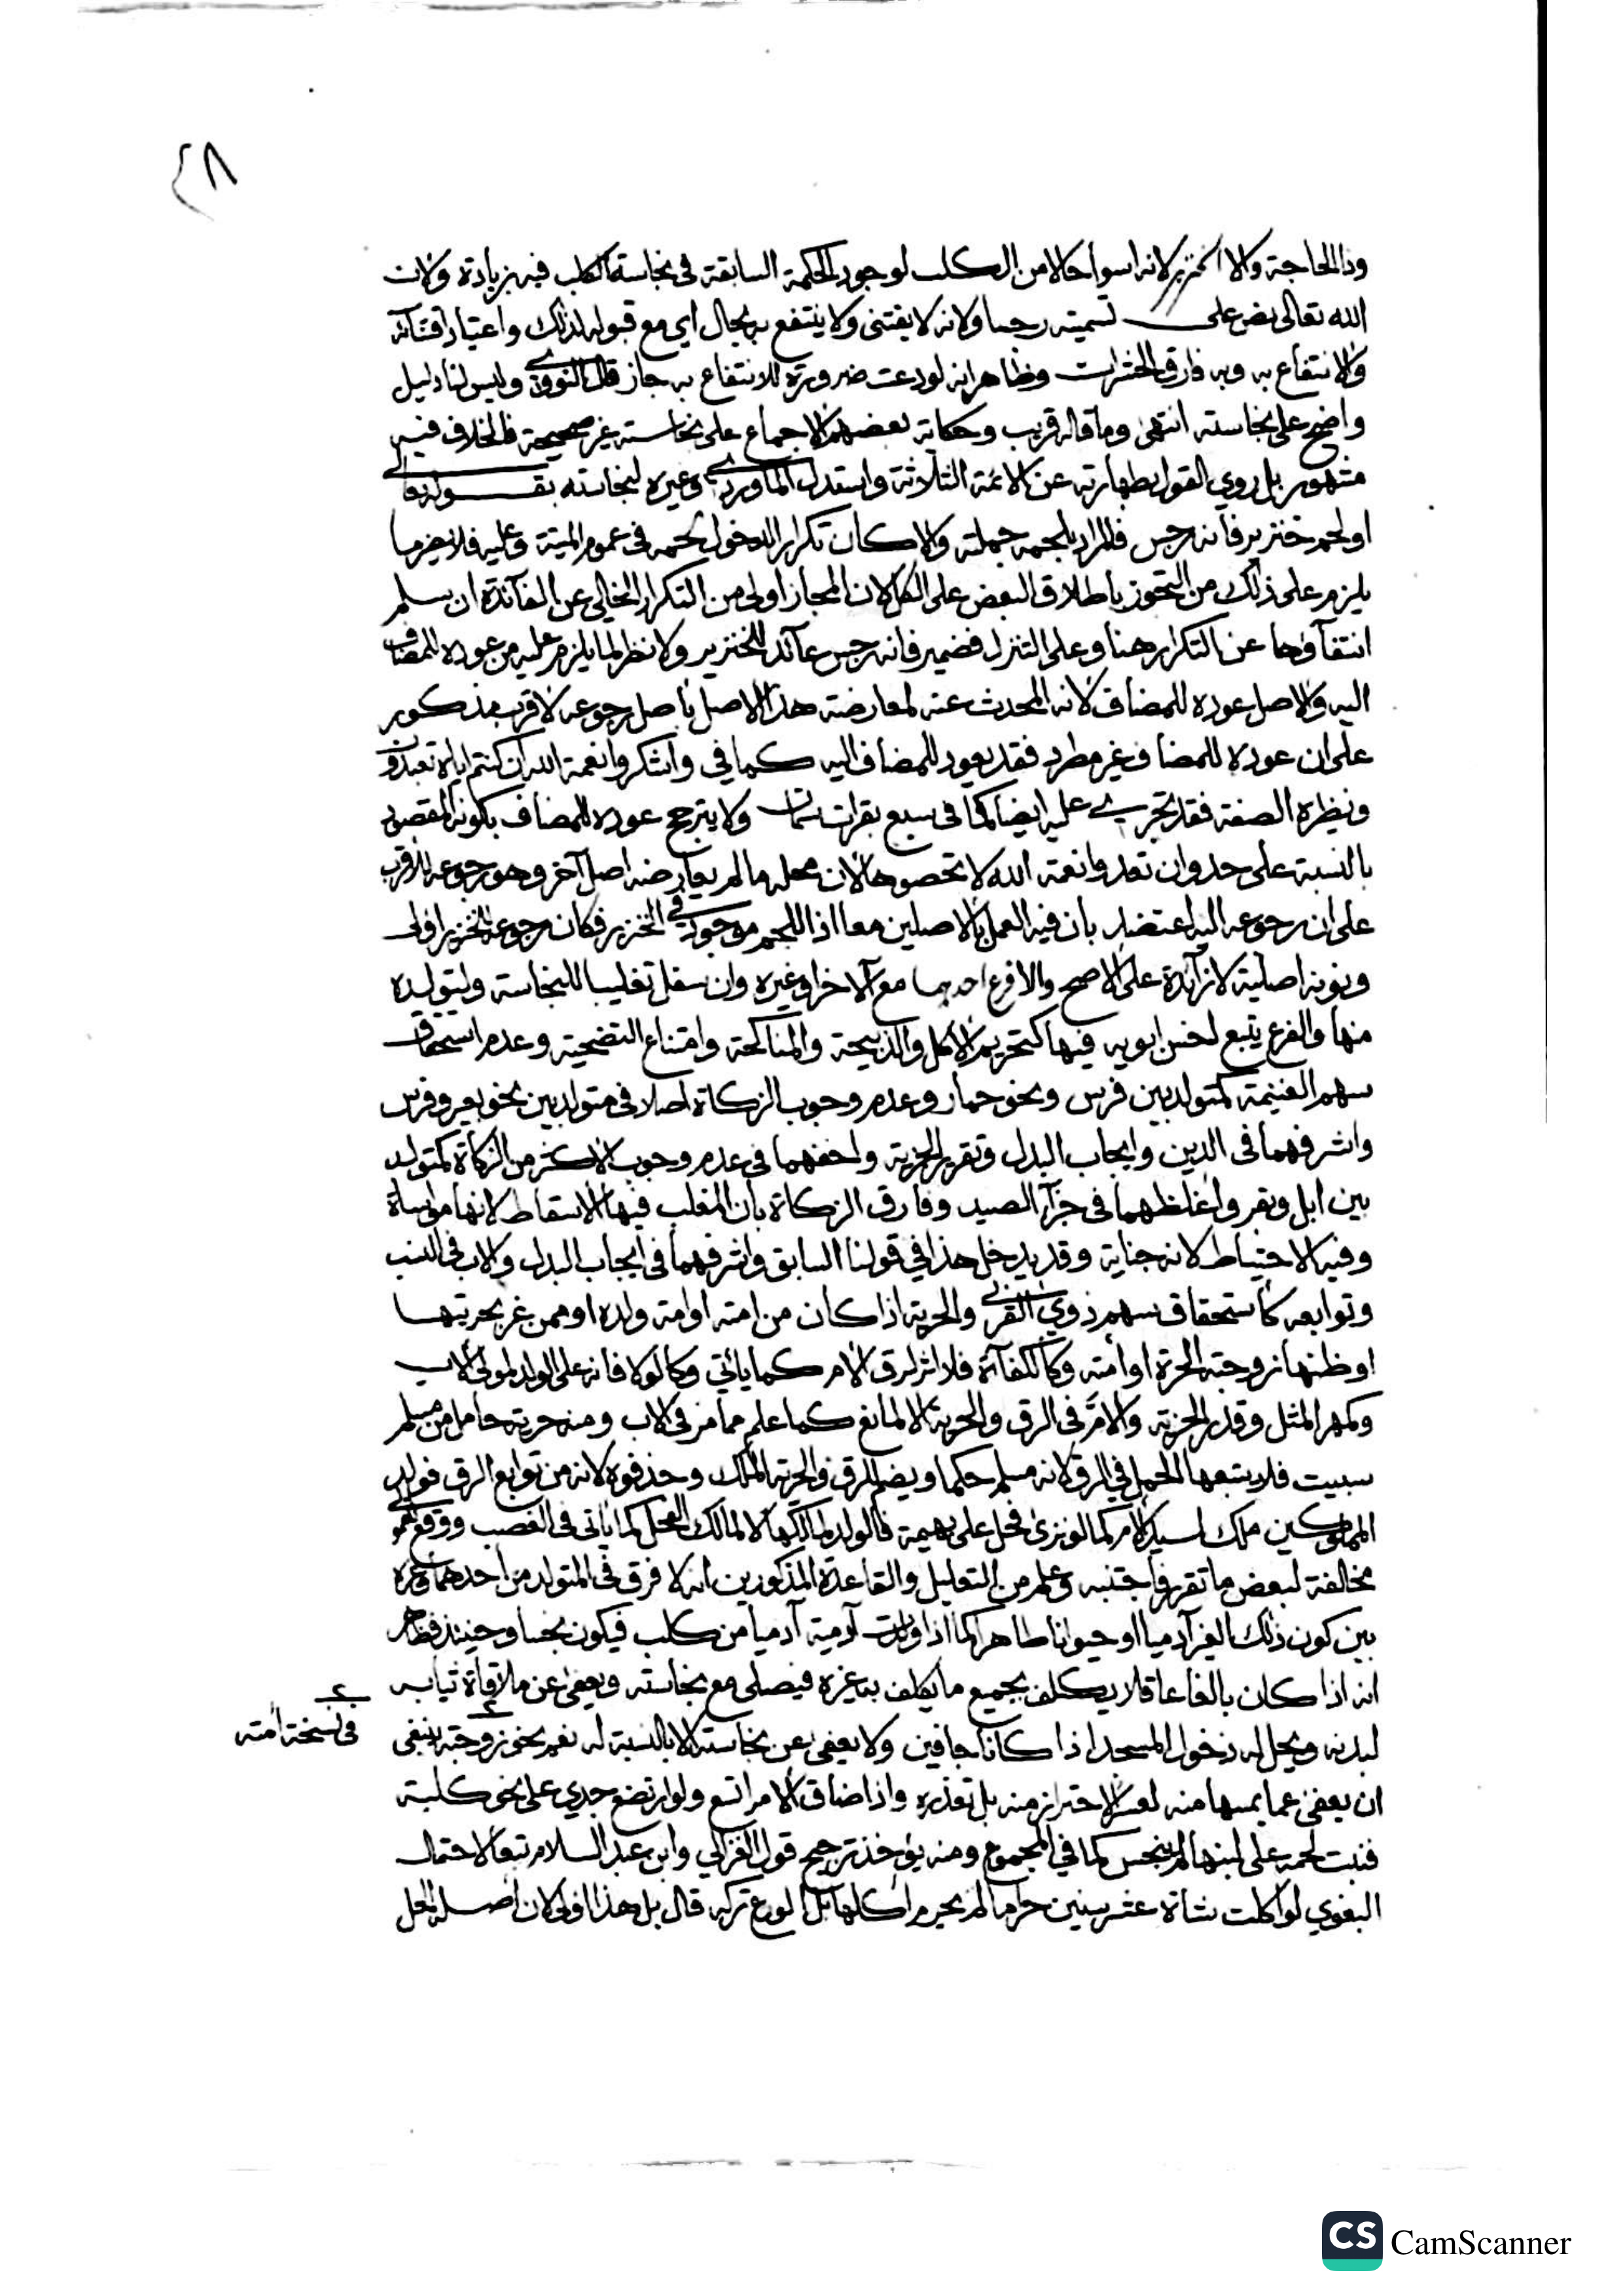 ٢٨
وذا الحاجة والا الخنزير لانه اسوأ حالا من الكلب لوجود الحكمة السابقة في نجاسة الكلب فيه بزيادة ولان
الله تعالى نص على تسميته رجسا ولانه لا يقتنى ولا ينتفع به بحال اي مع قبوله لذلك واعتياد اقتنائه
والانتفاع به وبه فارق الحشرات وظاهر انه لو دعت ضرورة للانتفاع به جاز قال النووي وليس لنا دليل
واضح على نجاسته انتهى وما قاله قريب وحكاية بعضهم الاجماع على نجاسته غير صحيحة فالخلاف فيه
مشهور بل روي القول بطهارته عن الائمة الثلاثة واستدل الماوردي وغيره لنجاسته بقوله تعالى
او لحم خنزير فانه رجس فالمراد بلحمه جملته والا كان تكرار الدخول لحمه في عموم الميتة وعليه فلا يضر ما
يلزم على ذلك من التجوز باطلاق البعض على الكل لان المجاز اولى من التكرار الخالي عن الفائدة ان سلم
انتفاؤها عن التكرار هنا وعلى التنزل فضمير فانه رجس عائد للخنزير ولا نظر لما يلزم عليه من عوده للمضاف
اليه والاصل عوده للمضاف لانه المحدث عنه لمعارضة هذا الاصل باصل رجوعه لاقرب مذكور
على ان عوده للمضاف غير مطرد فقد يعود للمضاف اليه كما في واشكروا نعمة الله ان كنتم اياه تعبدون
ونظيره الصفة فقد تجري عليه ايضا كما في سبع بقرات سمان ولا يترجح عوده للمضاف بكونه المقصود
بالنسبة على حد وان تعدوا نعمة الله لا تحصوها لان محله ما لم يعارضه اصل آخر وهو رجوعه للاقرب
على ان رجوعه اليه اعتضد بان فيه العمل بالاصلين معا اذ اللحم موجود في الخنزير فكان رجوعه للخنزير اولى
ونونه اصلية لا زائدة على الاصح والا فرع احدهما مع الآخر او غيره وان سفل تغليبا للنجاسة ولتولده
منها والفرع يتبع اخس ابويه فيها كتحريم الاكل والذبيحة والمناكحة وامتناع التضحية وعدم استحقاق
سهم الغنيمة كمتولد بين فرس ونحو حمار وعدم وجوب الزكاة اصلا في متولد بين نحو بعير وفرس
واشرفهما في الدين وايجاب البدل وتقرير الجزية واخفهما في عدم وجوب الاكثر من الزكاة كمتولد
بين ابل وبقر واغلظهما في جزاء الصيد وفارق الزكاة بان المغلب فيها الاسقاط لانها مواساة
وفيه الاحتياط لانه جناية وقد يدخل هذا في قولنا السابق واشرفهما في ايجاب البدل والاب في النسب
وتوابعه كاستحقاق سهم ذوي القربى والحرية اذا كان من امته او امة ولده او ممن غر بحريتها
او ظنها زوجته الحرة او امته وكالكفاءة فلا اثر لرق الام كما ياتي وكالولا فانه على الولد لمولى الاب
وكمهر المثل وقدر الجزية والام في الرق والحرية الا لمانع كما علم مما مر في الاب ومنه حربية حامل من مسلم
سبيت فلا يتبعها الحمل في الرق لانه مسلم حكما ويضم للرق والحرية الملك وحذفوه لانه من توابع الرق فولد
المملوكين ملك لسيد الام كما لو نزى فحل على بهيمة فالولد لمالكها لا لمالك الفحل كما ياتي في الغصب ووقع لهم
مخالفة لبعض ما تقرر فاجتنبه وعلم من التعليل والقاعدة المذكورين انه لا فرق في المتولد من احدهما وغيره
بين كون ذلك الغير آدميا او حيوانا طاهرا كما اذا ولدت آدمية آدميا من كلب فيكون نجسا وحينئذ فظاهر
انه اذا كان بالغا عاقلا يكلف بجميع ما يكلف به غيره فيصلى مع نجاسته ويعفى عن ملاقاة ثيابه
لبدنه ويحل له دخول المسجد اذا كانا جافين ولا يعفى عن نجاسته الا بالنسبة له نعم نحو زوجته ينبغي
في نسخة امته
ان يعفى عما يمسها منه لعسر الاحتراز منه بل تعذره واذا ضاق الامر اتسع ولو ارتضع جدي على نحو كلبة
فنبت لحمه على لبنها لم ينجس كما في المجموع ومنه يؤخذ ترجيح قول الغزالي وابن عبد السلام تبعا لاحتمال
البغوي لو اكلت شاة عشر سنين حراما لم يحرم اكلها بل الورع تركه قال بل هذا اولى لان اصله محل
CS CamScanner